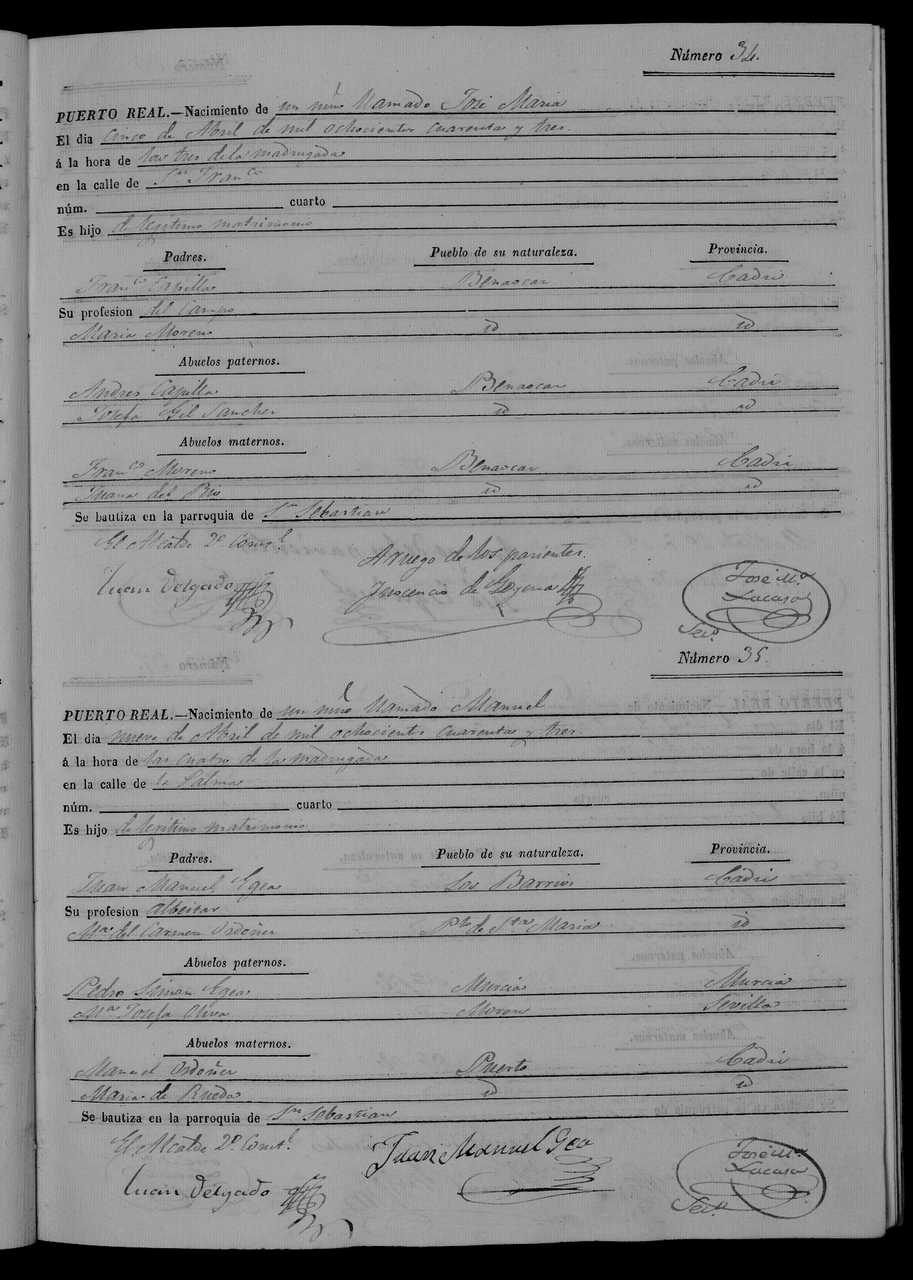 Número 34.
PUERTO REAL.—Nacimiento de un niño llamado José Maria
El dia cinco de Abril de mil ochocientos cuarenta y tres.
á la hora de las tres de la madrugada
en la calle de Sn. Franco
núm. cuarto
Es hijo de legitimo matrimonio
Padres. Pueblo de su naturaleza. Provincia.
Franco Capilla Benaocaz Cadiz
Su profesion del Campo
Maria Moreno id id
Abuelos paternos.
Andres Capilla Benaocaz Cadiz
Josefa Gil Sanchez id id
Abuelos maternos.
Franco Moreno Benaocaz Cadiz
Juana del Rio id id
Se bautiza en la parroquia de Sn Sebastian
El Alcalde 2º Constl. Aruego de los parientes.
Juan Delgado Inocencio de José Mª Lacasa
Seco.
Número 35.
PUERTO REAL.—Nacimiento de un niño llamado Manuel
El dia nueve de Abril de mil ochocientos cuarenta y tres
á la hora de las cuatro de la madrugada
en la calle de la Palma
núm. cuarto
Es hijo de legitimo matrimonio
Padres. Pueblo de su naturaleza. Provincia.
Juan Manuel Egea Los Barrios Cadiz
Su profesion albeitar
Mª del Carmen Ordoñez Pto de Sta Maria id
Abuelos paternos.
Pedro Simon Egea Murcia Murcia
Mª Josefa Oliva Moron Sevilla
Abuelos maternos.
Manuel Ordoñez Puerto Cadiz
Maria de Rueda id id
Se bautiza en la parroquia de Sn Sebastian
El Alcalde 2º Constl. Juan Manuel Gea José Mª Lacasa
Juan Delgado Seco.